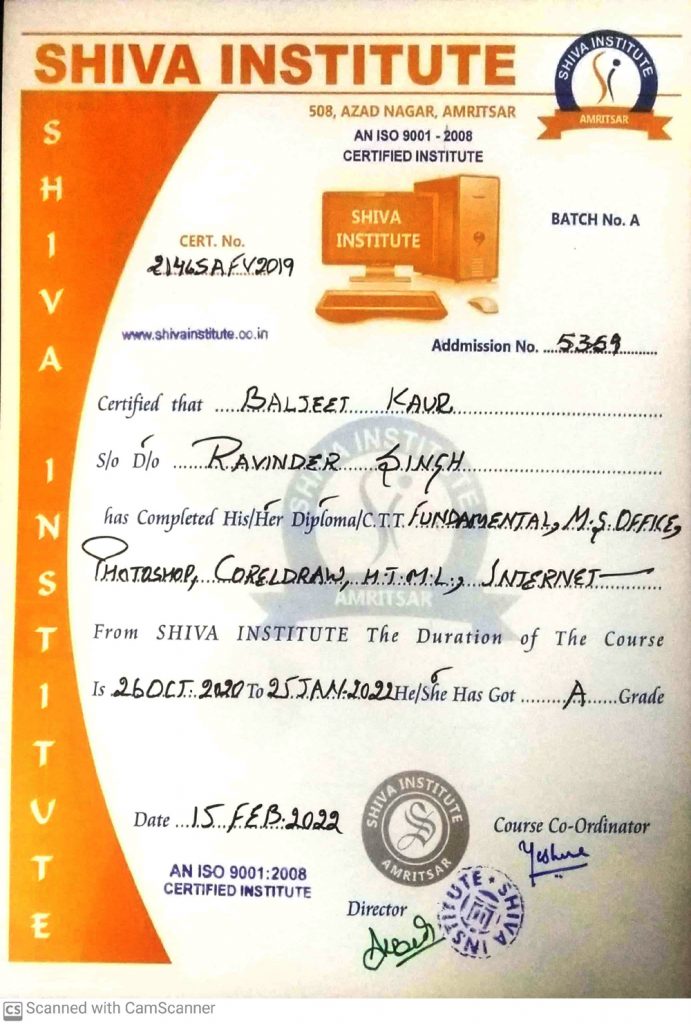 SHIVA INSTITUTE
SHIVA INSTITUTE
AMRITSAR
508, AZAD NAGAR, AMRITSAR
AN ISO 9001 - 2008
CERTIFIED INSTITUTE
SHIVA INSTITUTE
SHIVA
INSTITUTE
BATCH No. A
CERT. No.
2146SAFV2019
www.shivainstitute.co.in
Addmission No. ....5359............
Certified that ......BALJEET KAUR......
S/o D/o ......RAVINDER SINGH......
SHIVA INSTITUTE
has Completed His/Her Diploma/C.T.T. FUNDAMENTAL, M.S. OFFICE,
PHOTOSHOP, CORELDRAW, H.T.M.L., INTERNET
AMRITSAR
From SHIVA INSTITUTE The Duration of The Course
Is 26 OCT. 2020 To 25 JAN. 2022 He/She Has Got ........A......Grade
Date ...15 FEB. 2022
SHIVA INSTITUTE
S
AMRITSAR
Course Co-Ordinator
AN ISO 9001:2008
CERTIFIED INSTITUTE
Director
SHIVA INSTITUTE
CS Scanned with CamScanner